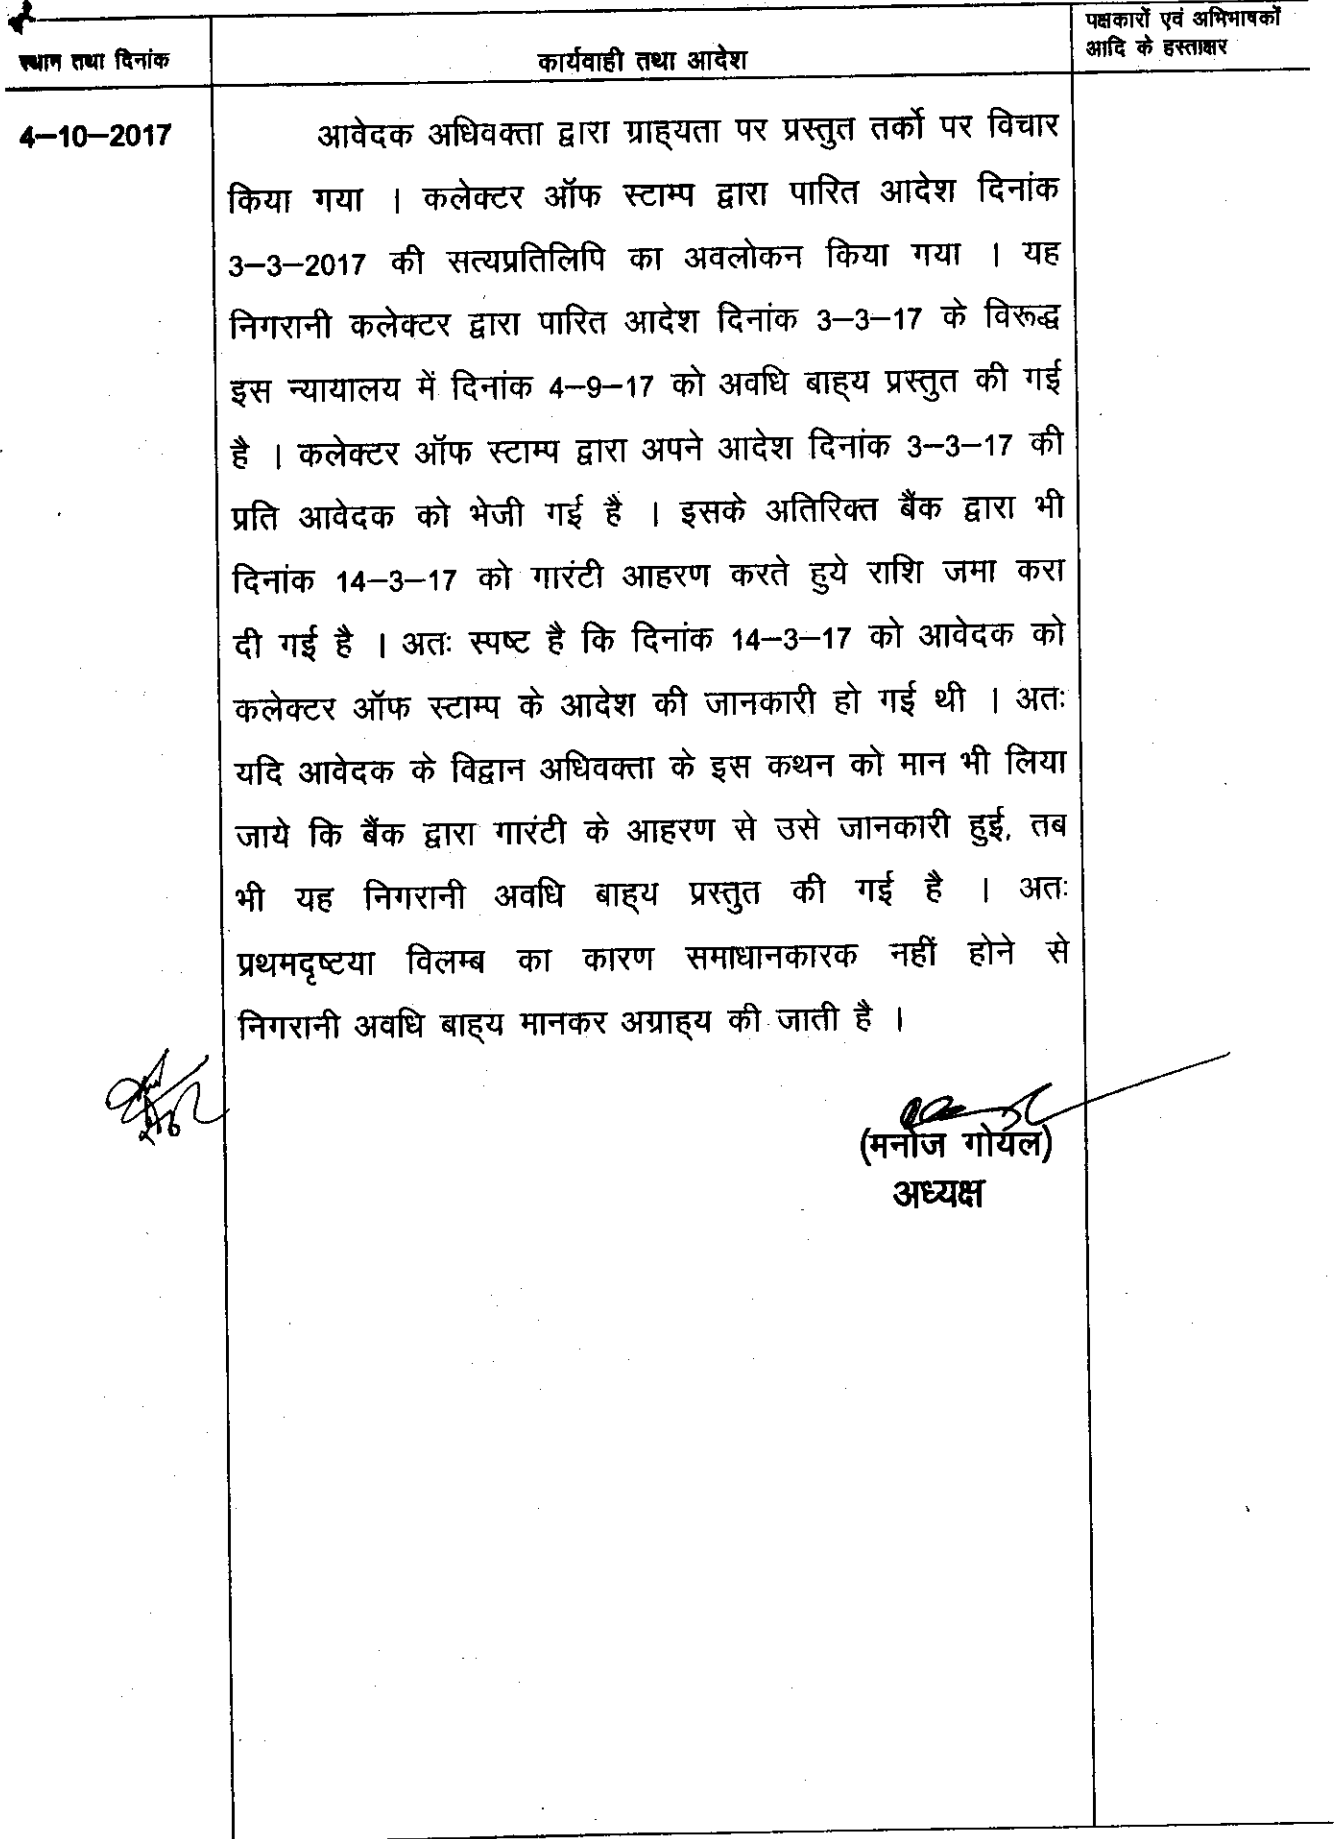 स्थान तथा दिनांक
कार्यवाही तथा आदेश
पक्षकारों एवं अभिभाषकों
आदि के हस्ताक्षर
4–10–2017
आवेदक अधिवक्ता द्वारा ग्राहयता पर प्रस्तुत तर्को पर विचार
किया गया । कलेक्टर ऑफ स्टाम्प द्वारा पारित आदेश दिनांक
3–3–2017 की सत्यप्रतिलिपि का अवलोकन किया गया । यह
निगरानी कलेक्टर द्वारा पारित आदेश दिनांक 3–3–17 के विरूद्ध
इस न्यायालय में दिनांक 4–9–17 को अवधि बाह्य प्रस्तुत की गई
है । कलेक्टर ऑफ स्टाम्प द्वारा अपने आदेश दिनांक 3–3–17 की
प्रति आवेदक को भेजी गई है । इसके अतिरिक्त बैंक द्वारा भी
दिनांक 14–3–17 को गारंटी आहरण करते हुये राशि जमा करा
दी गई है । अतः स्पष्ट है कि दिनांक 14–3–17 को आवेदक को
कलेक्टर ऑफ स्टाम्प के आदेश की जानकारी हो गई थी । अतः
यदि आवेदक के विद्वान अधिवक्ता के इस कथन को मान भी लिया
जाये कि बैंक द्वारा गारंटी के आहरण से उसे जानकारी हुई, तब
भी यह निगरानी अवधि बाह्य प्रस्तुत की गई है । अतः
प्रथमदृष्टया विलम्ब का कारण समाधानकारक नहीं होने से
निगरानी अवधि बाह्य मानकर अग्राह्य की जाती है ।
(मनोज गोयल)
अध्यक्ष